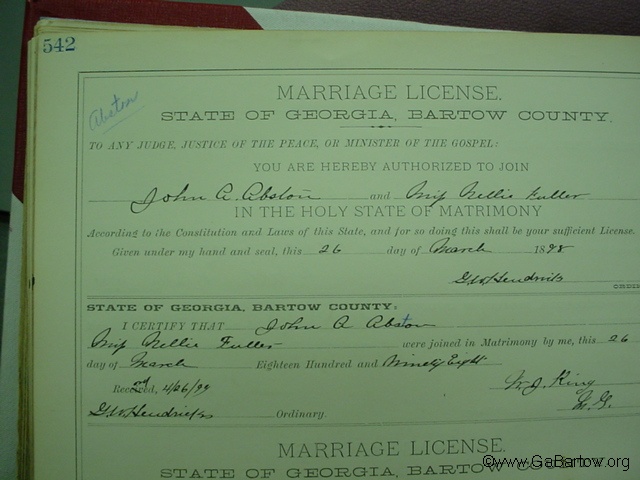 542
Abston
MARRIAGE LICENSE.
STATE OF GEORGIA, BARTOW COUNTY.
TO ANY JUDGE, JUSTICE OF THE PEACE, OR MINISTER OF THE GOSPEL:
YOU ARE HEREBY AUTHORIZED TO JOIN
John A. Abston and Miss Nellie Fuller
IN THE HOLY STATE OF MATRIMONY
According to the Constitution and Laws of this State, and for so doing this shall be your sufficient License.
Given under my hand and seal, this 26 day of March 1898
G W Hendricks
ORDIN
STATE OF GEORGIA, BARTOW COUNTY:
I CERTIFY THAT John A Abston
Miss Nellie Fuller were joined in Matrimony by me, this 26
day of March Eighteen Hundred and Ninety Eight
Recorded, 4/26/99 W. J. King
G W Hendricks Ordinary.
MARRIAGE LICENSE.
STATE OF GEORGIA, BARTOW COUNTY
©www.GaBartow.org